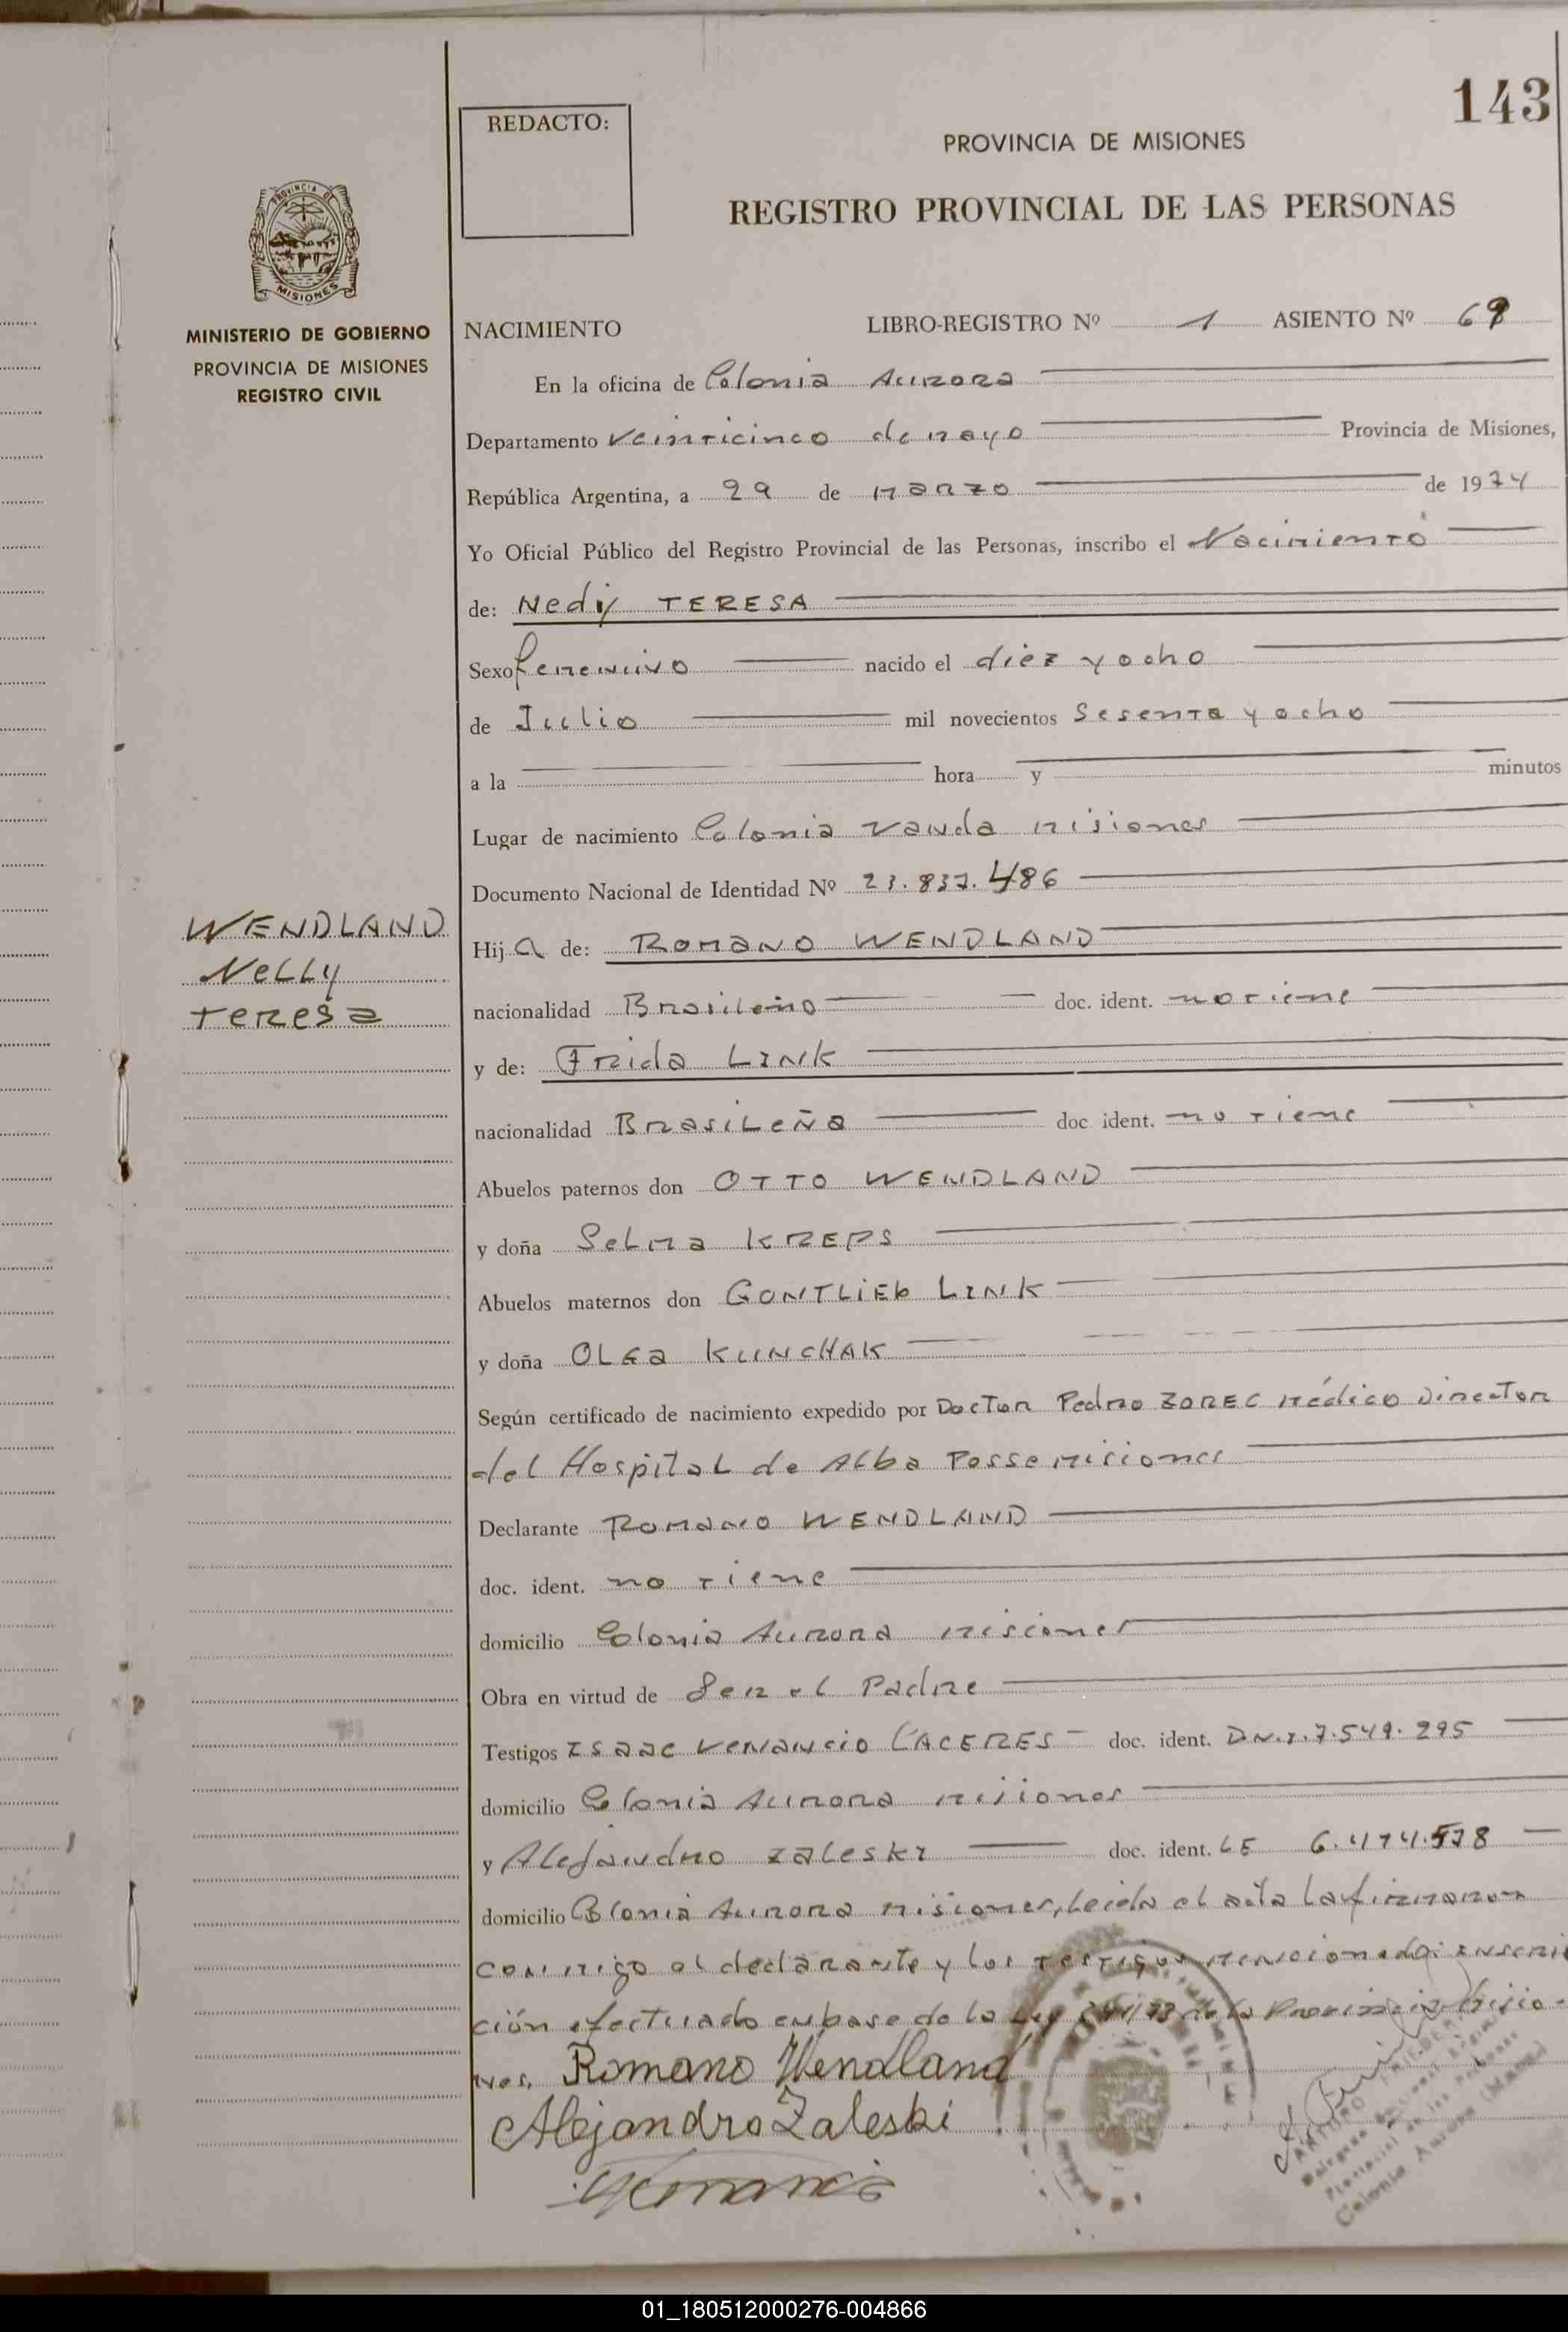 143
REDACTO:
PROVINCIA DE MISIONES
REGISTRO PROVINCIAL DE LAS PERSONAS
PROVINCIA DE
MISIONES
MINISTERIO DE GOBIERNO
PROVINCIA DE MISIONES
REGISTRO CIVIL
NACIMIENTO LIBRO-REGISTRO Nº 1 ASIENTO Nº 69
En la oficina de Colonia Aurora
Departamento Veinticinco de mayo Provincia de Misiones,
República Argentina, a 29 de Marzo de 1974
Yo Oficial Público del Registro Provincial de las Personas, inscribo el Nacimiento
de: Nediy TERESA
Sexo femenino nacido el diez y ocho
de Julio mil novecientos Sesenta y ocho
a la hora y minutos
Lugar de nacimiento Colonia Vanda misiones
Documento Nacional de Identidad Nº 23.837.486
WENDLAND
Nelly
Teresa
Hija de: ROMANO WENDLAND
nacionalidad Brasileño doc. ident. no tiene
y de: Frida LINK
nacionalidad Brasileña doc ident. no tiene
Abuelos paternos don OTTO WENDLAND
y doña Selma KREPS
Abuelos maternos don GONTLIEb LINK
y doña OLGa KUNCHAK
Según certificado de nacimiento expedido por Doctor Pedro ZOREC Médico Director
del Hospital de Alba Posse misiones
Declarante ROMANO WENDLAND
doc. ident. no tiene
domicilio Colonia Aurora misiones
Obra en virtud de Ser el Padre
Testigos ISAAC VENANCIO CACERES doc. ident. DN.I.7.549.295
domicilio Colonia Aurora misiones
y Alejandro Zaleski doc. ident. LE 6.474.578
domicilio Colonia Aurora misiones, leida el acta la firmaron
conmigo el declarante y los testigos mencionados inscrip
ción efectuado en base de la Ley /73 de la Provincia Misio-
nes.
Romano Wendland
Alejandro Zaleski
Colonia Aurora
01_180512000276-004866